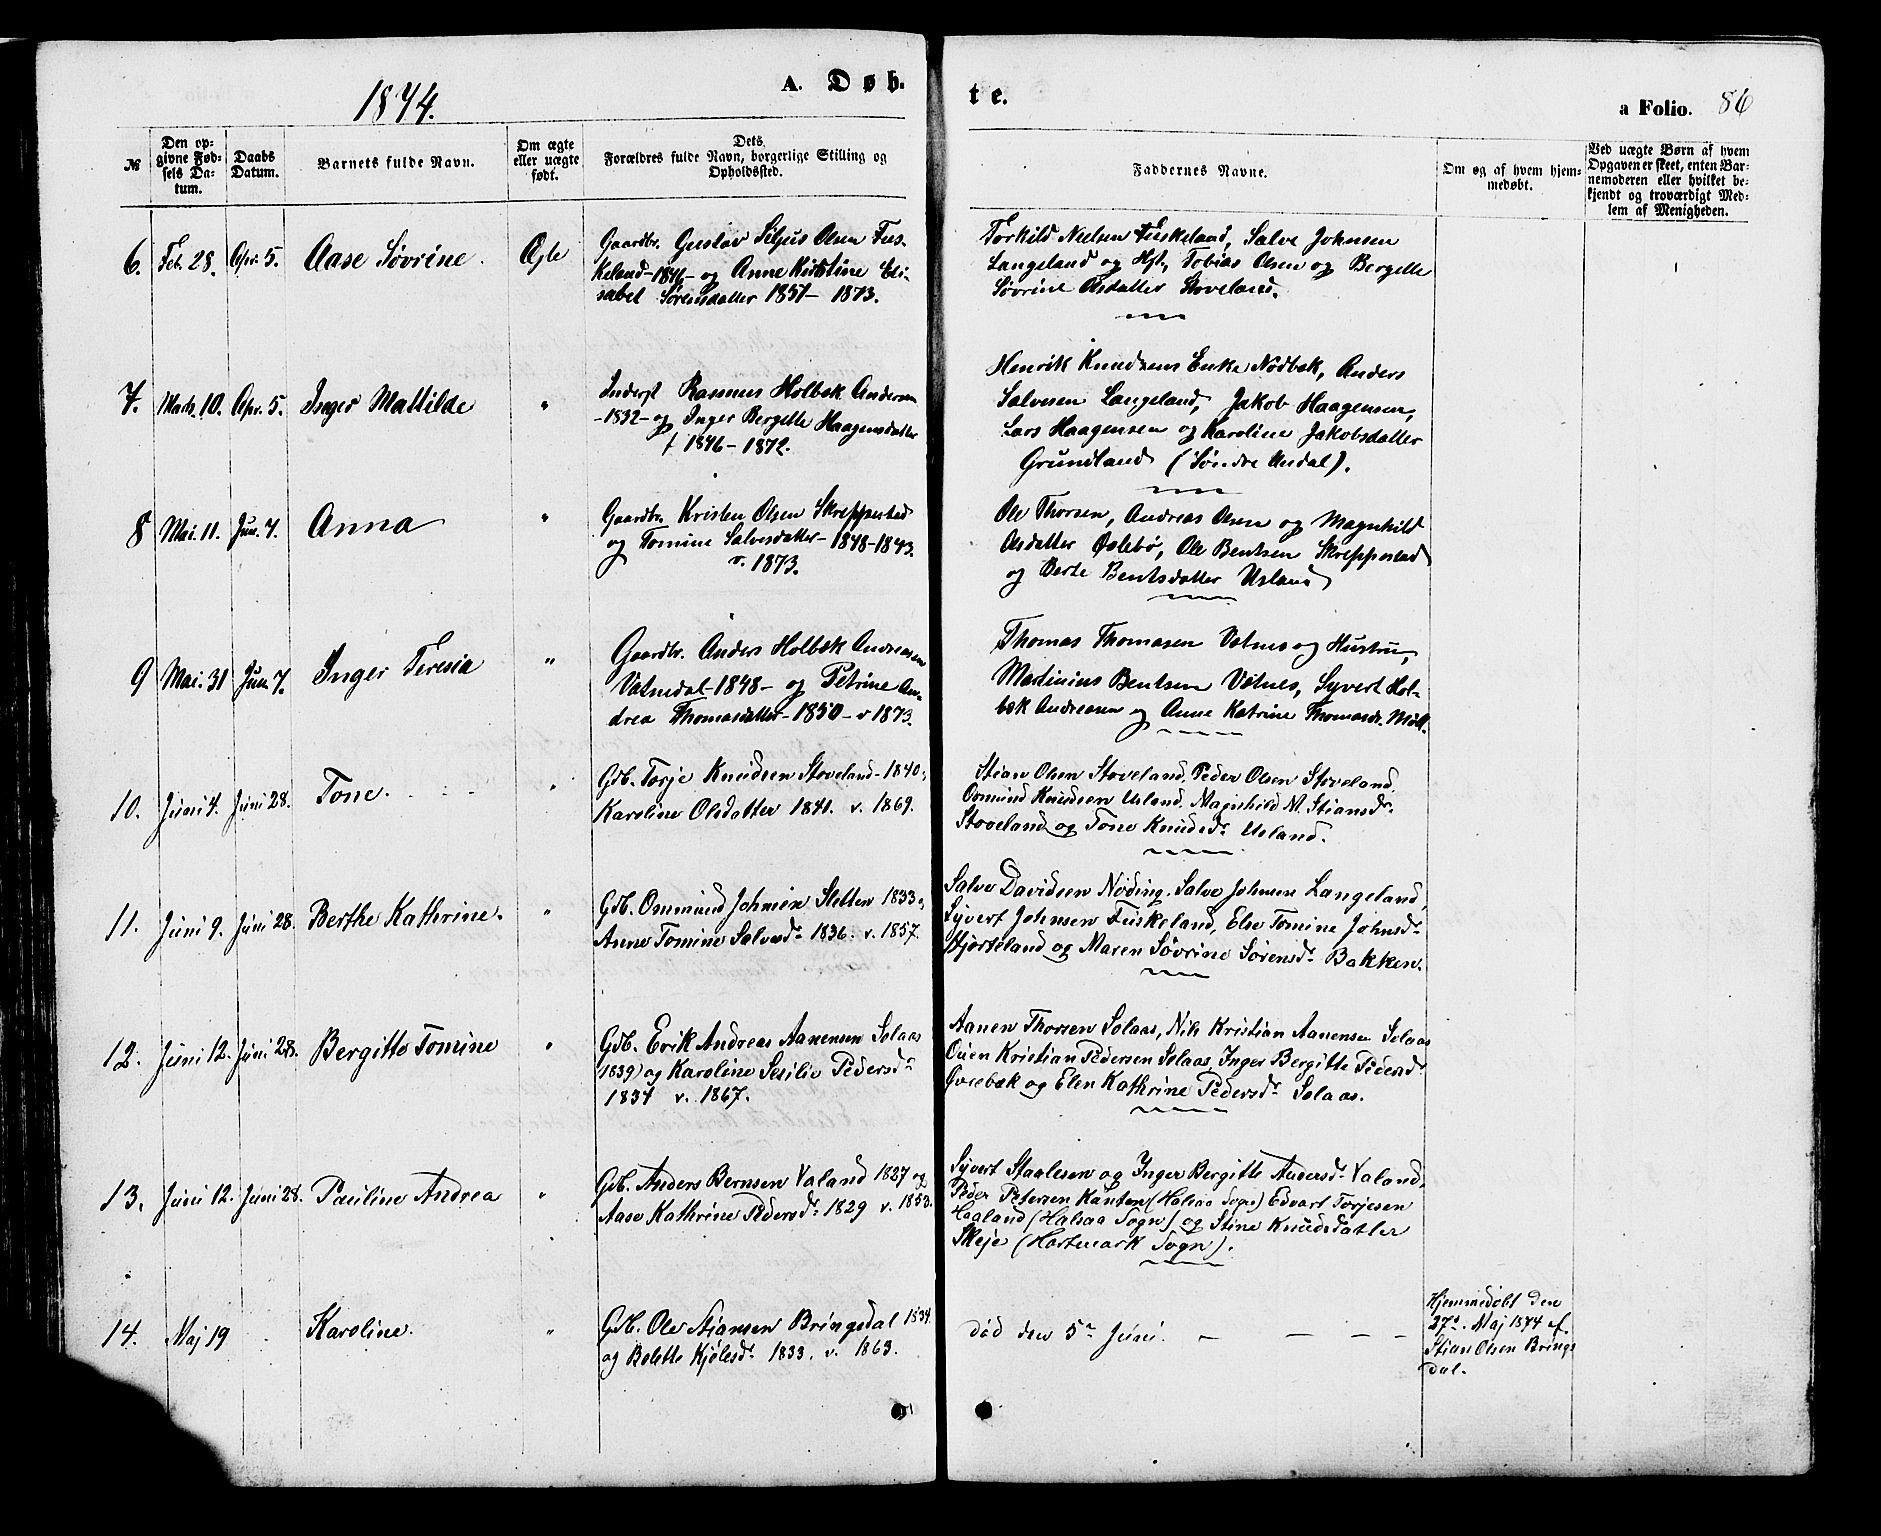 1874.
A. Døb-
te.
a Folio. 86
№
Den opgivne Fødsels Datum.
Daabs Datum.
Barnets fulde Navn.
Om ægte eller uægte født.
Dets Forældres fulde Navn, borgerlige Stilling og Opholdssted.
Faddernes Navne.
Om og af hvem hjemmedøbt.
Ved uægte Børn af hvem Opgaven er skeet, enten Barnemoderen eller hvilket bekjendt og troværdigt Medlem af Menigheden.
6. Feb. 28. Apr. 5. Aase Søvrine. Ægte
Gaardbr. Gustav Siljus Olsen Fus-
keland-1846- og Anne Kirstine Eli-
sabet Sørensdatter 1851- 1873.
Torkild Nielsen Fuskeland, Salve Johnsen
Langeland og Hst, Tobias Olsen og Bergette
Søvrine Olsdatter Stoveland.
7. Marts. 10. Apr. 5. Inger Mattilde "
Inderst Rasmus Holbæk Andersen
-1832- og Inger Bergette Haagensdatter
f 1846- 1872.
Henrik Knudsens Enke Nødbæk, Anders
Salvesen Langeland, Jakob Haagensen,
Lars Haagensen og Karoline Jakobsdatter
Grundland (Søndre Undal).
8 Mai. 11. Jun. 7. Anna "
Gaardbr. Kristen Olsen Skreppestad
og Tomine Salvesdatter- 1848-1843.
v. 1873.
Ole Thorsen, Andreas Olsen og Magnhild
Olsdatter Øslebø, Ole Bentsen Skreppestad
og Berte Bentsdatter Usland
9 Mai. 31 Jun 7. Inger Teresia "
Gaardbr. Anders Holbæk Andreasen
Vatnedal-1848- og Petrine An-
drea Thomasdatter- 1850- v 1873.
Thomas Thomasen Vatnes og Hustru,
Martinius Bentsen Vatnes, Syvert Hol-
bæk Andreasen og Anne Katrine Thomasdr.
10. Juni 4. Juni 28. Tone. "
Gdb. Torje Knudsen Stoveland- 1840,
Karoline Olsdatter 1841. v. 1869.
Stian Olsen Stoveland. Peder Olsen Stoveland.
Osmund Knudsen Usland. Magnhild M. Stiansdr
Stoveland og Tone Knudsdr Usland.
11. Juni 9. Juni 28. Berthe Kathrine. "
Gdb. Ommund Johnsen Sletten 1833 og
Anne Tomine Salvesdr 1836. v. 1857.
Salve Davidsen Nøding. Salve Johnsen Langeland,
Syvert Johnsen Fuskeland, Else Tomine Johnsdr
Hjorteland og Maren Søvrine Sørensdr Bakken.
12. Juni 12. Juni 28. Bergitte Tomine "
Gdb. Erik Andreas Aanensen Solaas
1839) og Karoline Sesilie Pedersdr
1834 v. 1867.
Aanen Thorsen Solaas, Nils Kristian Aanensen Solaas
Ouen Kristian Pedersen Solaas, Inger Bergitte Pedersdr
Øvrebæk og Elen Kathrine Pedersdr Solaas.
13. Juni 12. Juni 28. Pauline Andrea "
Gdb. Anders Berntsen Valand 1827 og
Aase Kathrine Pedersdr 1829 v. 1853.
Syvert Staalesen og Inger Bergitte Andersdr Valand,
Peder Petersen (Halsaa Sogn) Edvart Torjesen
Haaland (Halsaa Sogn) og Stine Knudsdatter
Skeje (Hartmark Sogn).
14. Maj 19 Karoline. "
Gdb. Ole Stiansen Bringsdal 1834.
og Bolette Kjølesdr 1833. v. 1863.
død den 5te Juni. — — — —
Hjemmedøbt den
27de Maj 1874 af
Stian Olsen Brings
dal.